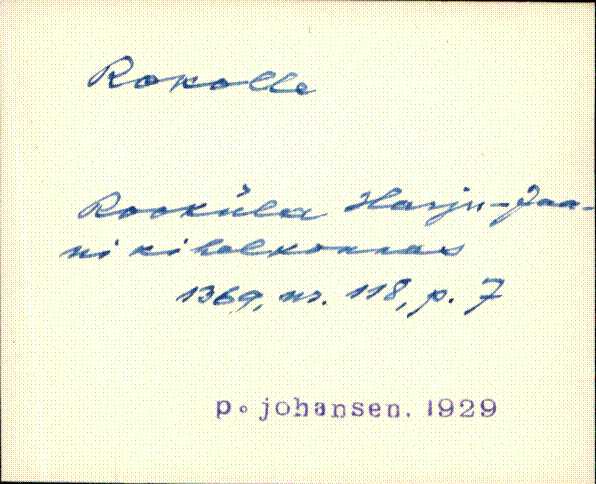 Rokolle
Rooküla Harju-Jaa-
ni kihelkonnas
1369, nr. 118, p. 7
p. johansen. 1929